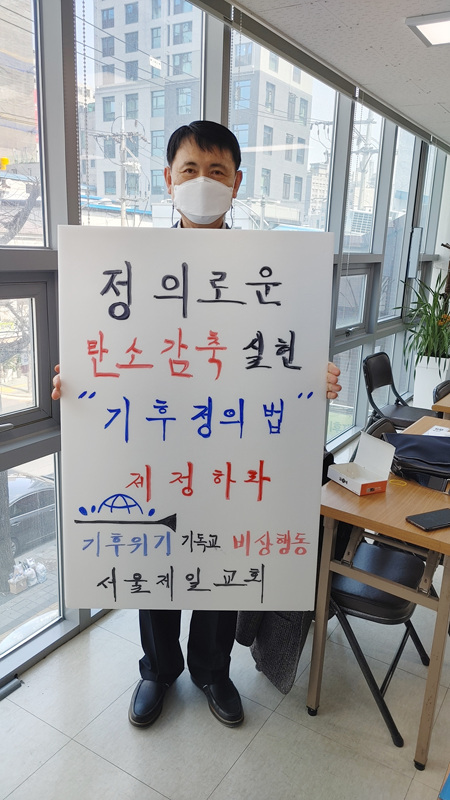 정의로운
탄소감축 실현
"기후정의법"
제정하라
기후위기 기독교 비상행동
서울제일교회